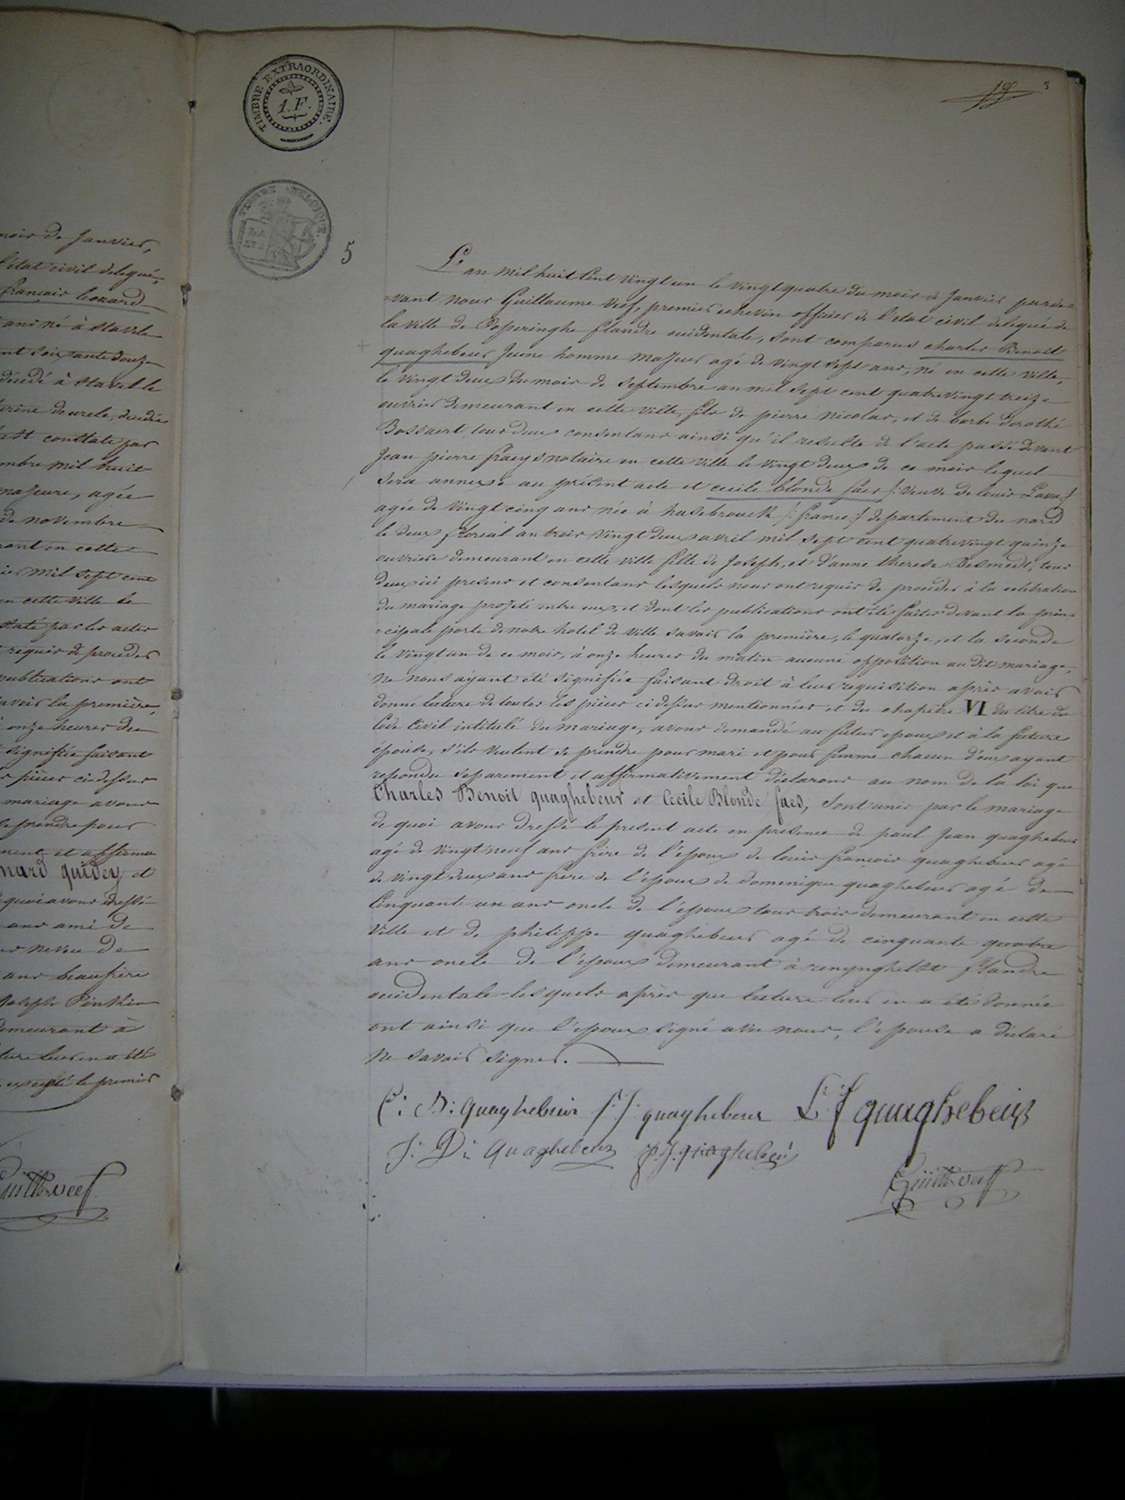 mois de Janvier,
l'etat civil delegué
françois leonard
ans né à Stavele
cent soixante douze
décédé à Stavele
constaté par
mil huit
majeure, agée
de novembre
en cette
mil sept cent
en cette ville le
par les actes
requis de proceder
publications ont
savoir la première,
onze heures du
signifiée faisant
pièces ci dessus
mariage avons
prendre pour
et affirma
nard quidey et
quoi avons dressé
ans ami de
neveu de
ans beau frère
Joseph
demeurant à
lecture leur en a été
excepté le premier
Guill: Veef
TIMBRE EXTRAORDINAIRE.
1.F.
TIMBRE BELGIQUE.
5
5
L'an mil huit Cent vingt un le vingt quatre du mois de Janvier parde-
-vant nous Guillaume Veef, premier echevin officier de l'etat civil delegué de
la ville de Poperinghe flandre occidentale, sont comparus charles Benoit
quaghebeur Jeune homme majeur agé de vingt sept ans, né en cette ville,
le vingt deux du mois de septembre an mil sept cent quatre vingt treize
ouvrier demeurant en cette ville, fils de pierre nicolas, et de barbe dorothé
Bossaert, tous deux consentans ainsi qu'il resulte de l'acte passé devant
Jean pierre notaire en cette ville le vingt deux de ce mois lequel
sera annexé au présent acte et cecile blonde faes /: veuve de louis :/
agée de vingt cinq ans née à hasebrouck /: france :/ departement du nord
le deux floreal an trois vingt deux avril mil sept cent quatre vingt quinze
ouvriere demeurant en cette ville fille de Joseph, et d'anne therese Desmedt, tous
deux ici presens et consentans lesquels nous ont requis de proceder à la celebration
du mariage projeté entre eux et dont les publications ont été faites devant la prin-
-cipale porte de notre hotel de ville savoir la première, le quatorze, et la seconde
le vingt un de ce mois, à onze heures du matin aucune opposition au dit mariage,
ne nous ayant été signifiée faisant droit à leur requisition après avoir
donné lecture de toutes les pièces ci dessus mentionnées et du chapitre VI du titre du
Code Civil intitulé du mariage, avons demandé au futur epoux et à la future
epouse, s'ils veulent se prendre pour mari et pour femme chacun d'eux ayant
repondu separement et affirmativement declarons au nom de la loi que
Charles Benoit quaghebeur et Cecile Blonde faes, sont unis par le mariage
de quoi avons dressé le present acte en présence de paul Jean quaghebeur
agé de vingt neuf ans frère de l'epoux de louis francois quaghebeur agé
de vingt deux ans frère de l'epoux de dominique quaghebeur agé de
Cinquante un ans oncle de l'epoux tous trois demeurant en cette
ville et de philippe quaghebeur agé de cinquante quatre
ans oncle de l'epoux demeurant à renynghelst flandre
occidentale lesquels après que lecture leur en a été donnée
ont ainsi que l'epoux signé avec nous, l'epouse a declaré
ne savoir signer.
C: B: quaghebeur P: J: quaghebeur L: f quaghebeur
J: D: quaghebeur p. J. quaghebeur
Guill: Veef